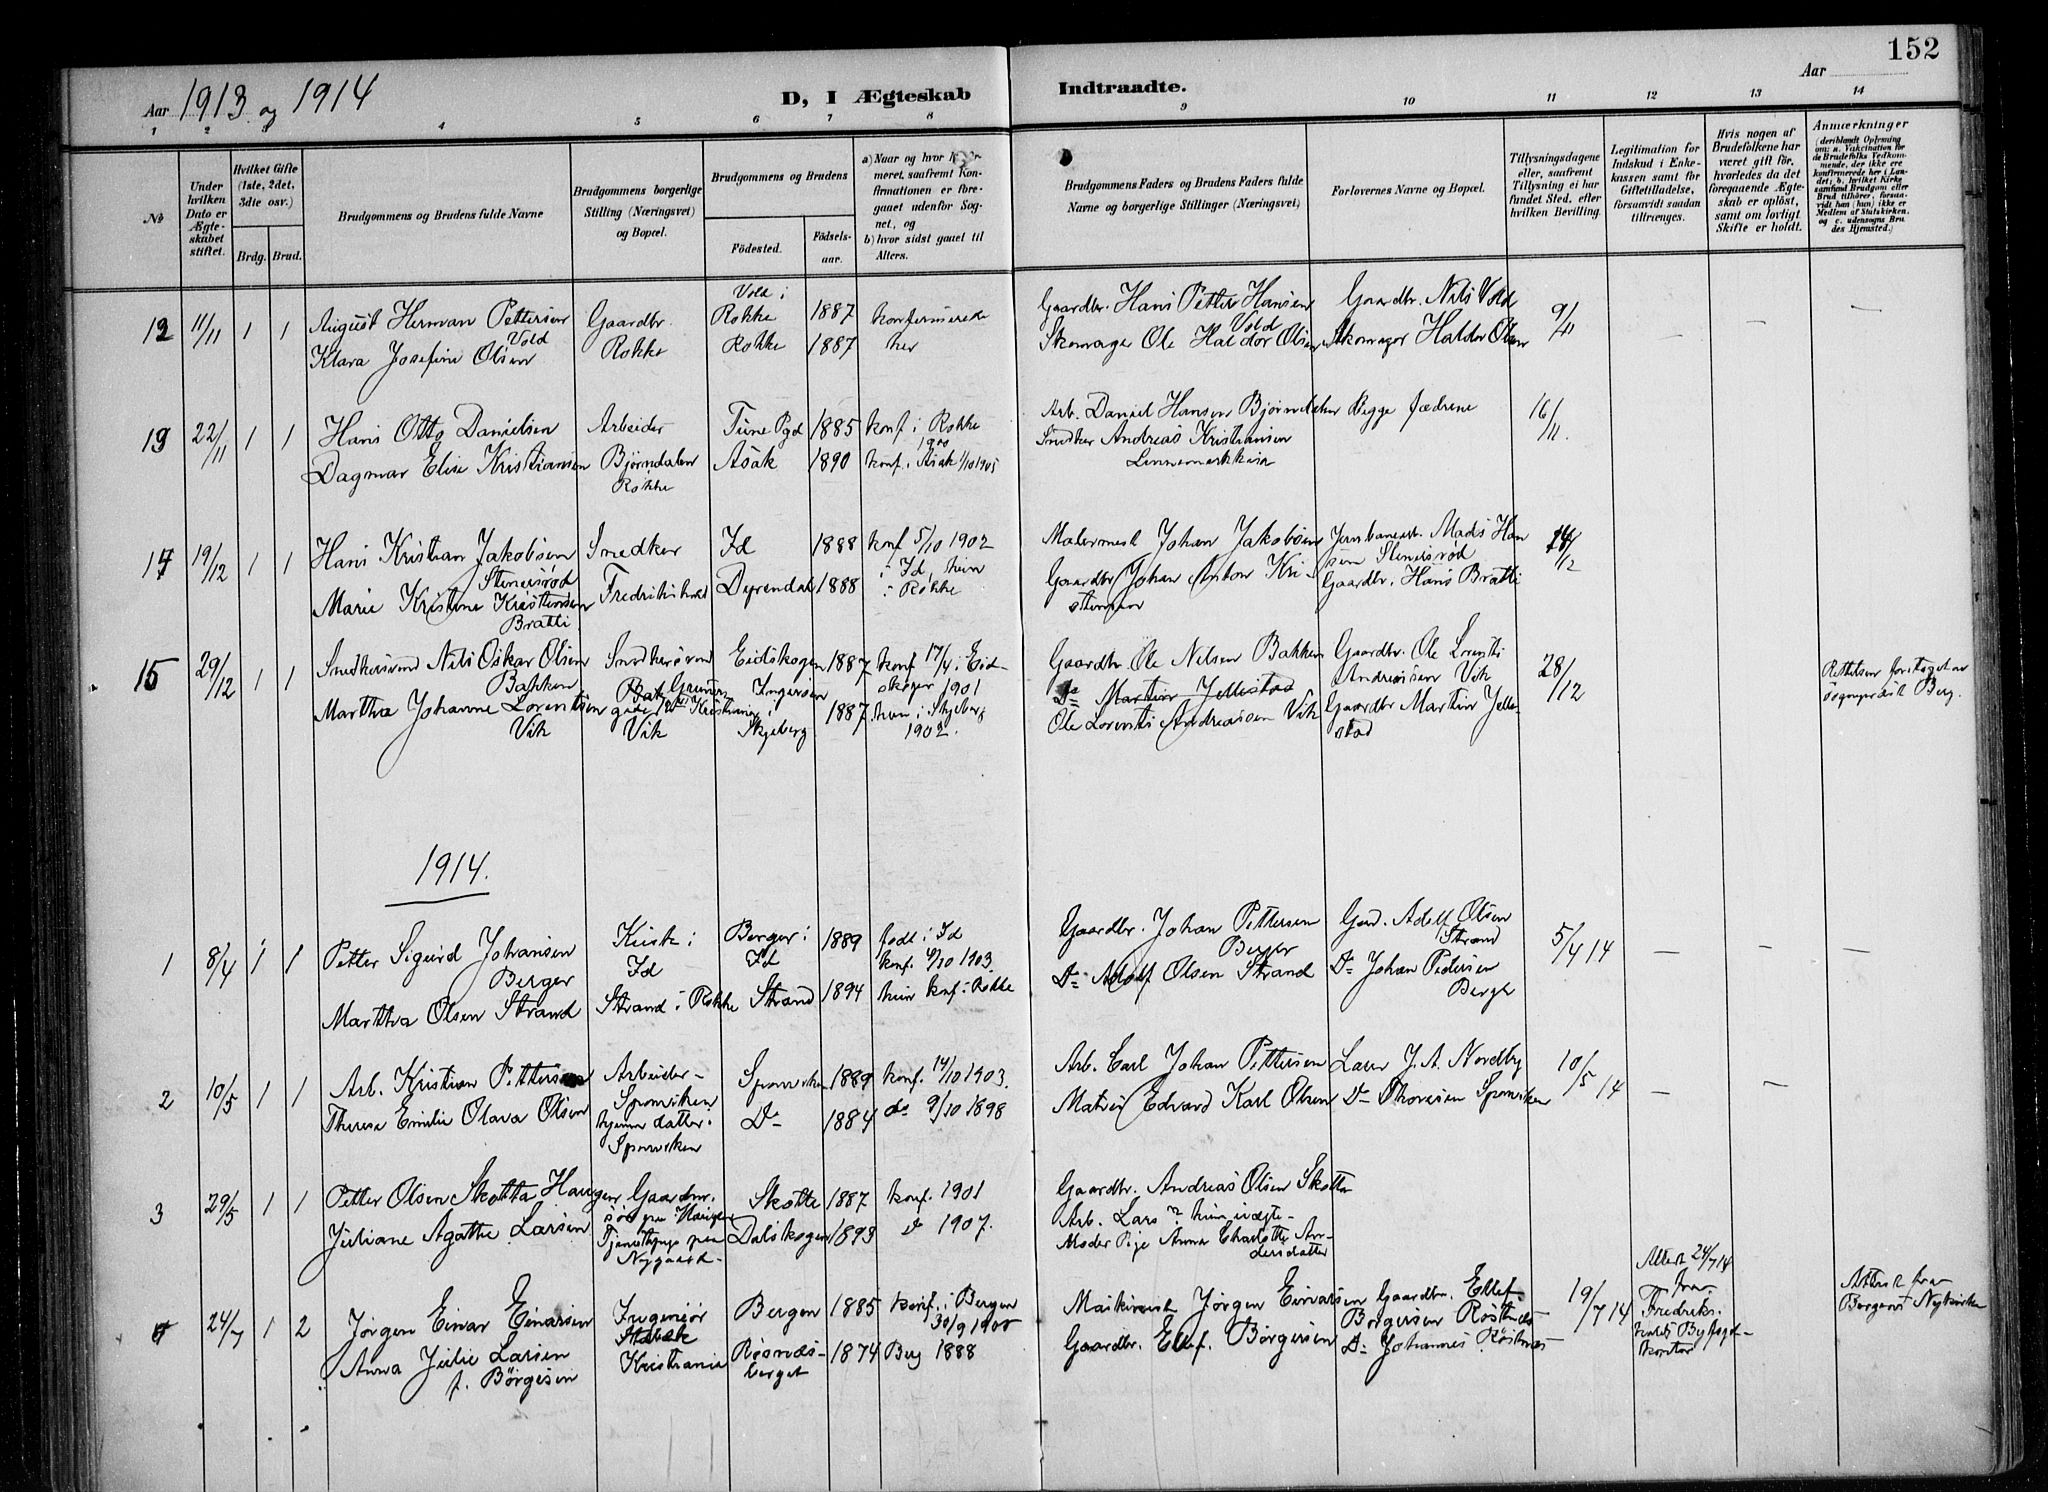 152
Aar 1913 og 1914
D, I Ægteskab Indtraadte.
Aar
1 2 3 4 5 6 7 8 9 10 11 12 13 14
No
Under hvilken Dato er Ægteskabet stiftet.
Hvilket Gifte (1ste, 2det, 3die osv.)
Brdg. Brud.
Brudgommens og Brudens fulde Navne
Brudgommens borgerlige Stilling (Næringsvei) og Bopæl.
Brudgommens og Brudens
Födested.
Födselsaar.
b) hvor sidst gaaet til Alters.
Brudgommens Faders og Brudens Faders fulde Navne og borgerlige Stillinger (Næringsvei)
Forlovernes Navne og Bopæl.
Tillysningsdagene eller, saafremt Tillysning ei har fundet Sted, efter hvilken Bevilling.
Legitimation for Indskud i Enkekassen samt for Giftetilladelse, forsaavidt saadan tiltrænges.
Hvis nogen af Brudefolkene har været gift før, hvorledes da det foregaaende Ægteskab er oplöst, samt om lovligt Skifte er holdt.
Anmærkninger
12 11/11 1 1 August Herman Pettersen Vold Gaardbr. Rokke Vold i Rokke 1887 konfirmerede her Gaardbr. Hans Petter Hansen Vold Gaardbr. Nils Vold 9/11 — — —
Klara Josefine Olsen Rokke 1887 Skomager Ole Haldor Olsen Skomager Haldor Olsen
13 22/11 1 1 Hans Otto Danielsen Arbeider Tune Pgd 1885 konf i Rokke Arb. Daniel Hansen Bjørndalen Begge fædrene 16/11.
Dagmar Elise Kristiansen Bjørndalen Rokke Asak 1890 konf. i Asak 1/10 1905 Snedker Andreas Kristiansen
19/12 1 1 Hans Kristian Jakobsen Stenersrød Snedker Id 1888 konf 5/10 1902 i Id, hun i Rokke Malermest Johan Jakobsen Jernbanearb. Mads Hansen Stenersrød
Marie Kristine Kristiansen Bratli Fredrikshald 1888 Gaardbr Johan Anton Kristiansen Gaardbr. Hans Bratli
15 29/12 1 1 Snedkersvend Nils Oskar Olsen Bakken Snedkersvend Eidskogen 1887 konf 17/4 i Eidskogen 1901 Gaardbr. Ole Nilsen Bakken Gaardbr. Ole Lorents Andreasen Vik 28/12
Martha Johanne Lorentsen Vik Kristiania Vik i Skjeberg 1887 hun i Skjeberg 1902. Do Martin Jellestad
Ole Lorents Andreasen Vik Gaardbr Martin Jellestad
Sogneprest Berg.
1914.
1 8/4 1 1 Petter Sigurd Johansen Berger Kusk i Id Berger i Id 1889 født i Id konf. 1903. Gaardbr. Johan Pettersen Berger Gaard. Adolf Olsen Strand 5/4 14 — — —
Martha Olsen Strand Strand i Rokke Strand 1894 hun konf. i Rokke Do Adolf Olsen Strand Do Johan Pedersen Berger
2 10/5 1 1 Arb. Kristian Pettersen Arbeider Sponviken Sponviken 1889 konf. 14/10 1903. Arb. Carl Johan Pettersen J. A. Nordby 10/5 14 — —
Therese Emilie Olava Olsen hjemmedatter Sponviken Do 1884 do 9/10 1898 Edvard Karl Olsen Do Thoresen Sponviken
3 29/5 1 1 Petter Olsen Skotta Haugen Skotte 1887 konf. 1901 Gaardbr. Andreas Olsen Skotta
Juliane Agathe Larsen Tjenestepige paa Nygaard Dalskogen 1893 do 1907. Arb. Lars
Moder Pige Anna Charlotte Andersdatter
4 24/7 1 2 Jørgen Einar Einarsen Ingeniør Bergen 1885 konf. i Bergen 30/9 1900 Maskinmest Jørgen Einarsen Gaardbr. Ellef Børgersen Røsnæs 19/7 14 Attest 24/7 14 fra Fredrikshalds Byfogdkontor Attest fra Bergens Nykirke
Anna Julie Larsen f. Børgesen Kristiania Røsnæsberget 1874 Berg 1888 Gaardbr. Ellef. Børgersen Do Johannes Røsnæs